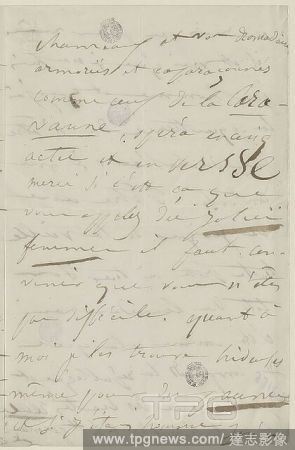 chameaux et vos dromadaires
armoriés et caparaçonnés
comme ceux de la Cara
vanne, opéra en cinq
actes et en
merci si c'est ça que
vous appelez des jolies
femmes il faut con
venir que vous n'êtes
pas difficile. quant à
moi je les trouve hideuses
même pour des
TPG
www.tpgnews.com/達志影像